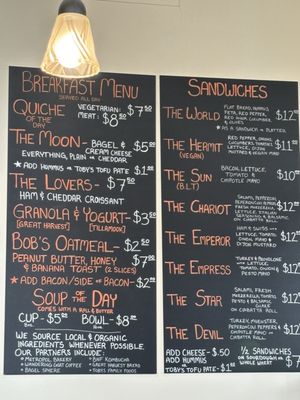 BREAKFAST MENU
SERVED ALL DAY
QUICHE
OF THE
DAY
VEGETARIAN: $7.50
MEAT: $8.50
THE MOON - BAGEL & $5.00
CREAM CHEESE
EVERYTHING, PLAIN OR CHEDDAR
★ ADD HUMMUS OR TOBY'S TOFU PATE $1.00
THE LOVERS - $7.50
HAM & CHEDDAR CROISSANT
GRANOLA & YOGURT - $3.50
[GREAT HARVEST] [TILLAMOOK]
BOB'S OATMEAL - $2.50
PEANUT BUTTER, HONEY $7.00
& BANANA TOAST (2 SLICES)
★ ADD BACON/SIDE OF BACON - $2.00
SOUP OF THE DAY
COMES WITH A ROLL & BUTTER
CUP - $5.50 BOWL - $8.00
WE SOURCE LOCAL & ORGANIC
INGREDIENTS WHENEVER POSSIBLE.
OUR PARTNERS INCLUDE:
★ METROPOL BAKERY ★ BAIT KOMBUCHA
★ WANDERING GOAT COFFEE ★ GREAT HARVEST BREAD
★ BAGEL SPHERE ★ TOBYS FAMILY FOODS
SANDWICHES
THE WORLD
FLAT BREAD, HUMMUS,
FETA, RED PEPPER,
RED ONION, CUCUMBERS
& OLIVES
$12
★ AS A SANDWICH OR PLATTER
THE HERMIT
(VEGAN)
RED PEPPER, ONION,
CUCUMBERS, TOMATO,
LETTUCE, DIJON
MUSTARD & VEGAN MAYO
$11
THE SUN
(BLT)
BACON, LETTUCE,
TOMATO &
CHIPOTLE MAYO
$10
THE CHARIOT
SALAMI, PEPPERONI,
PEPPERONCINI, FRESH
LETTUCE, ITALIAN
SEASONING & BALSAMIC
ON CIABATTA
$12
THE EMPEROR
HAM & SWISS
LETTUCE, TOMATO,
ONION, MAYO &
DIJON MUSTARD
$12
THE EMPRESS
TURKEY & PROVOLONE
WITH LETTUCE,
TOMATO, ONION &
PESTO MAYO
$12
THE STAR
SALAMI, FRESH
MOZZARELLA, TOMATO
PESTO & BALSAMIC
GLAZE
ON CIABATTA ROLL
$12
THE DEVIL
TURKEY, MUENSTER,
PEPPERONCINI, TOMATO
PEPPERS & CHIPOTLE
MAYO
ON CIABATTA ROLL
$12
ADD CHEESE - $.50
ADD HUMMUS OR
TOBY'S TOFU PATE - $1.00
½ SANDWICHES
ON SOURDOUGH OR
WHOLE WHEAT
$7